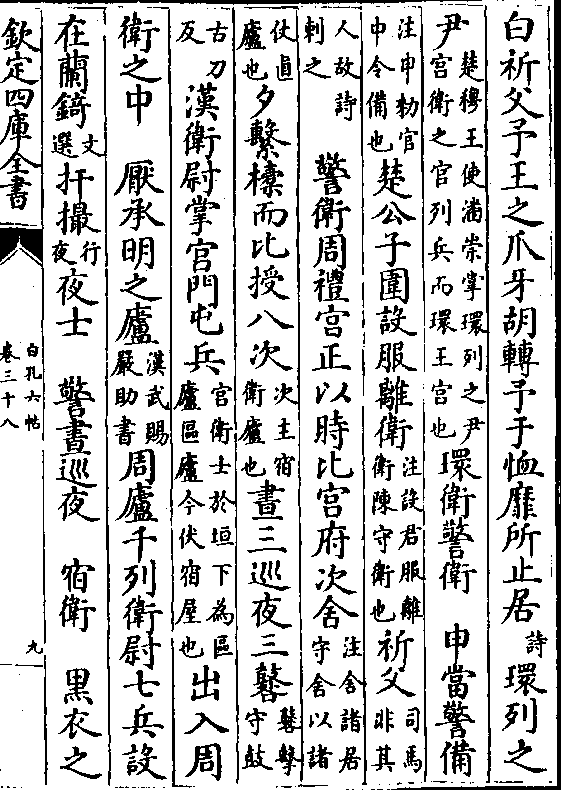 白祈父予王之爪牙胡轉予于恤靡所止居詩環列之
尹楚穆王使潘崇掌環列之尹宮衛之官列兵而環王宮也環衛警衛　申當警備
注申勑官中令備也楚公子圍設服離衛注設君服離衛陳守衛也祈父司馬非其
人故詩刺之　警衛周禮宮正以時比宮府次舍注舍諸居守舍以諸
仗直廬也夕繫欜而比授八次次主宿衛廬也晝三巡夜三鼜鼜擊守鼓
古刀反漢衛尉掌宮門屯兵宮衛士於垣下為區廬區廬今伏宿屋也出入周
衛之中　厭承明之廬漢武賜嚴助書周廬千列衛尉七兵設
在蘭錡文選扞撮行夜夜士　警晝巡夜　宿衛　黑衣之
欽定四庫全書
白孔六帖
卷三十八
九